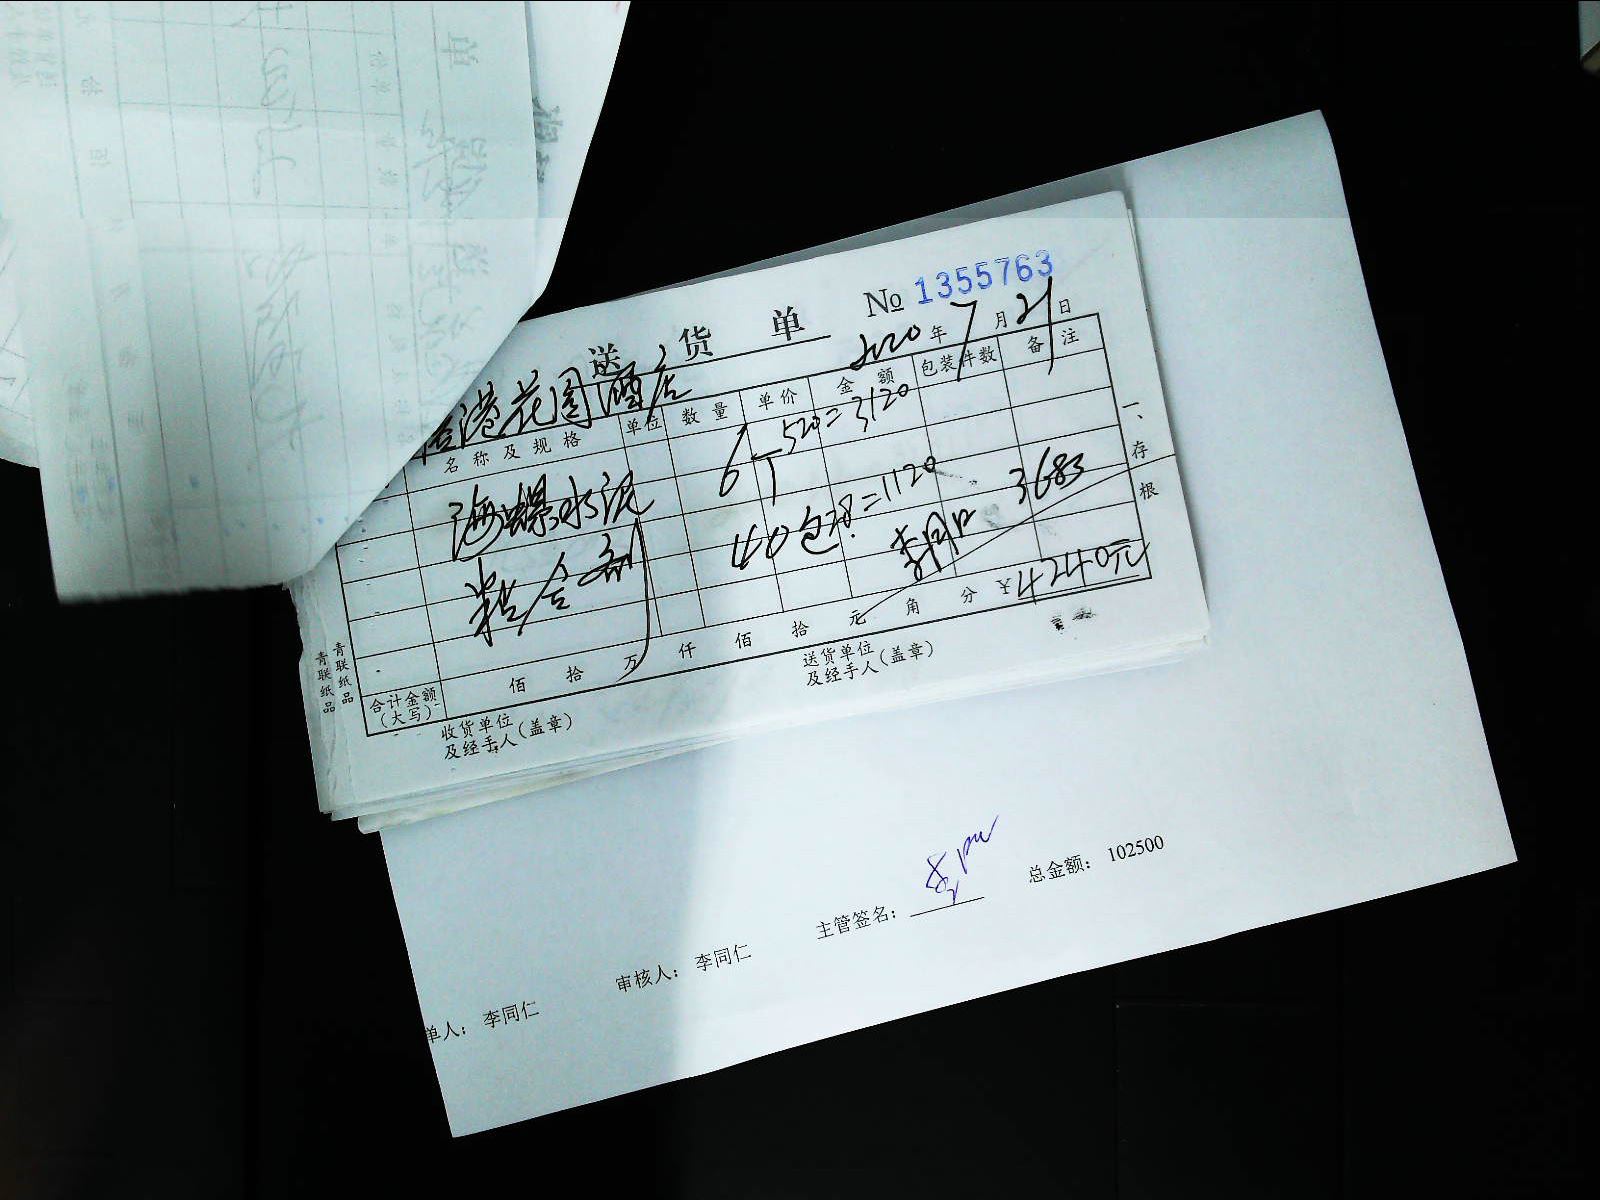 送货单
№ 1355763
2020年7月21日
港花园酒店
名称及规格 单位 数量 单价 金额 包装件数 备注
海螺水泥 6T 520=3120
粘合剂 40包28=1120
3683
合计金额(大写) 佰 拾 万 仟 佰 拾 元 角 分 ¥4240元
收货单位及经手人(盖章)
送货单位及经手人(盖章)
一、存根
青联纸品
青联纸品
单人: 李同仁 审核人: 李同仁 主管签名: 总金额: 102500